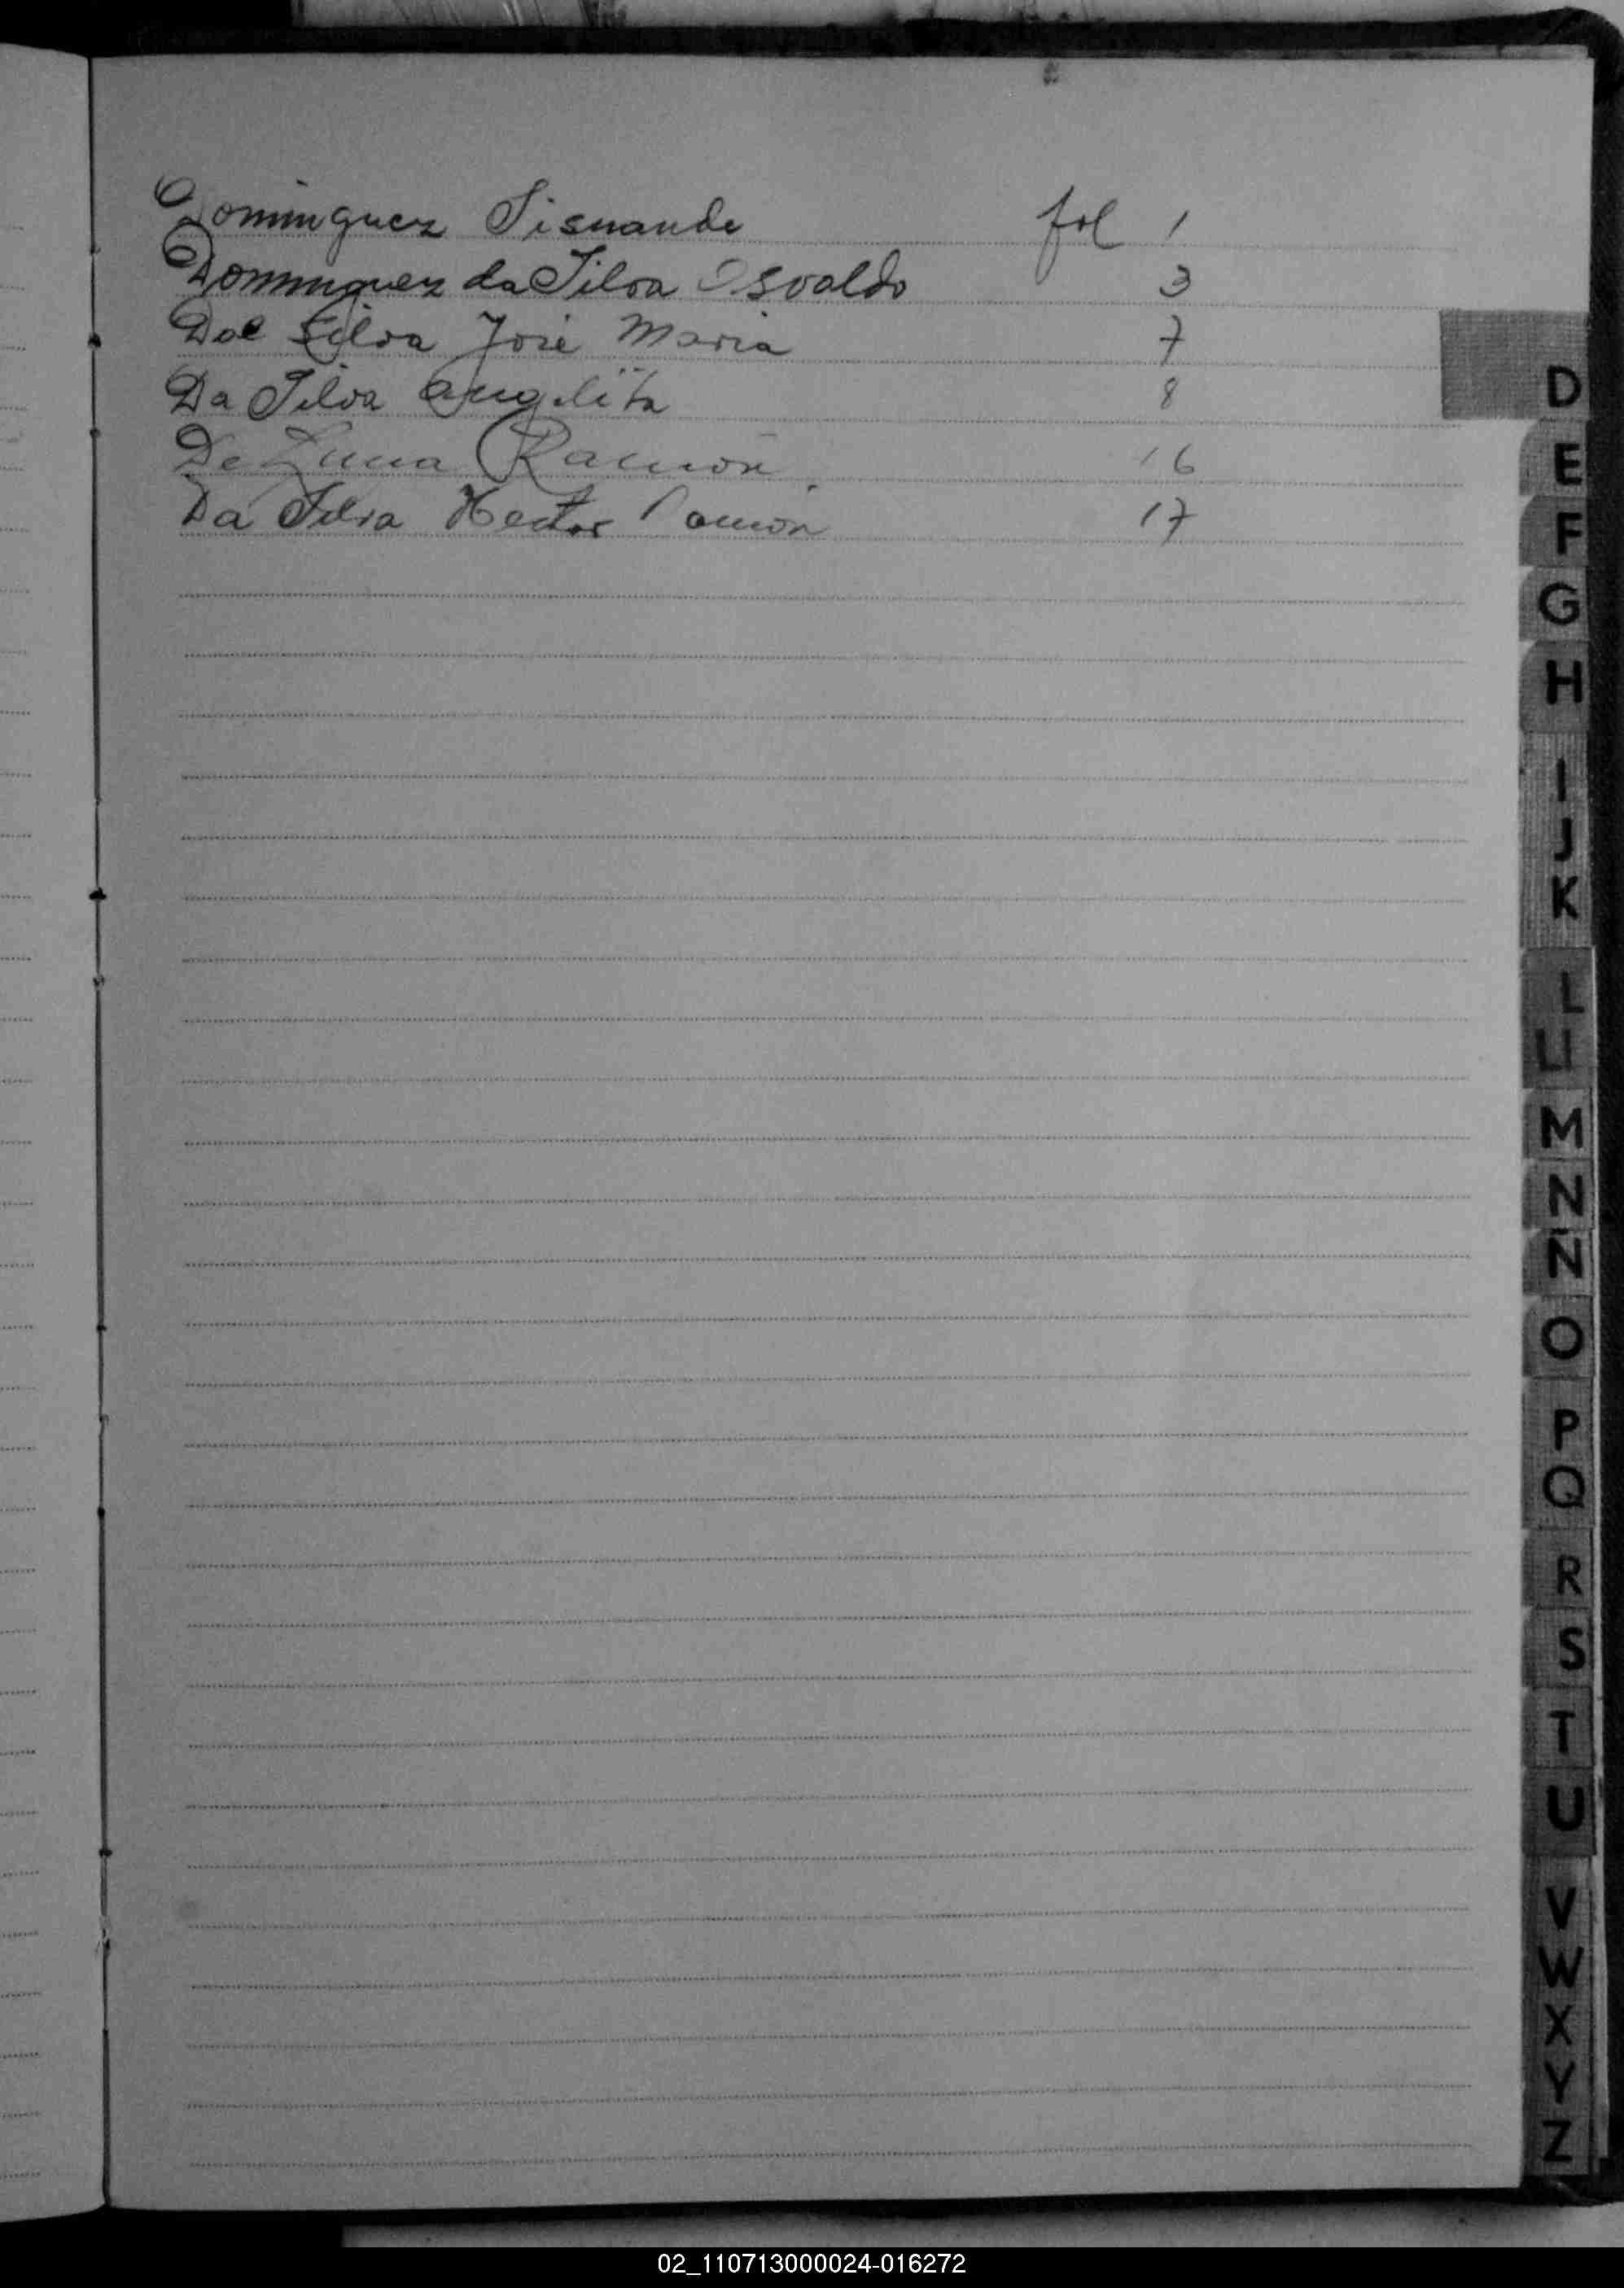 Dominguez Sisnande fol 1
Dominguez da Silva Osvaldo 3
Dal Silva José Maria 7
Da Silva Angelita 8
De Luna Ramón 16
Da Silva Hector Ramón 17
D
E
F
G
H
I
J
K
L
LL
M
N
Ñ
O
P
Q
R
S
T
U
V
W
X
Y
Z
02_110713000024-016272